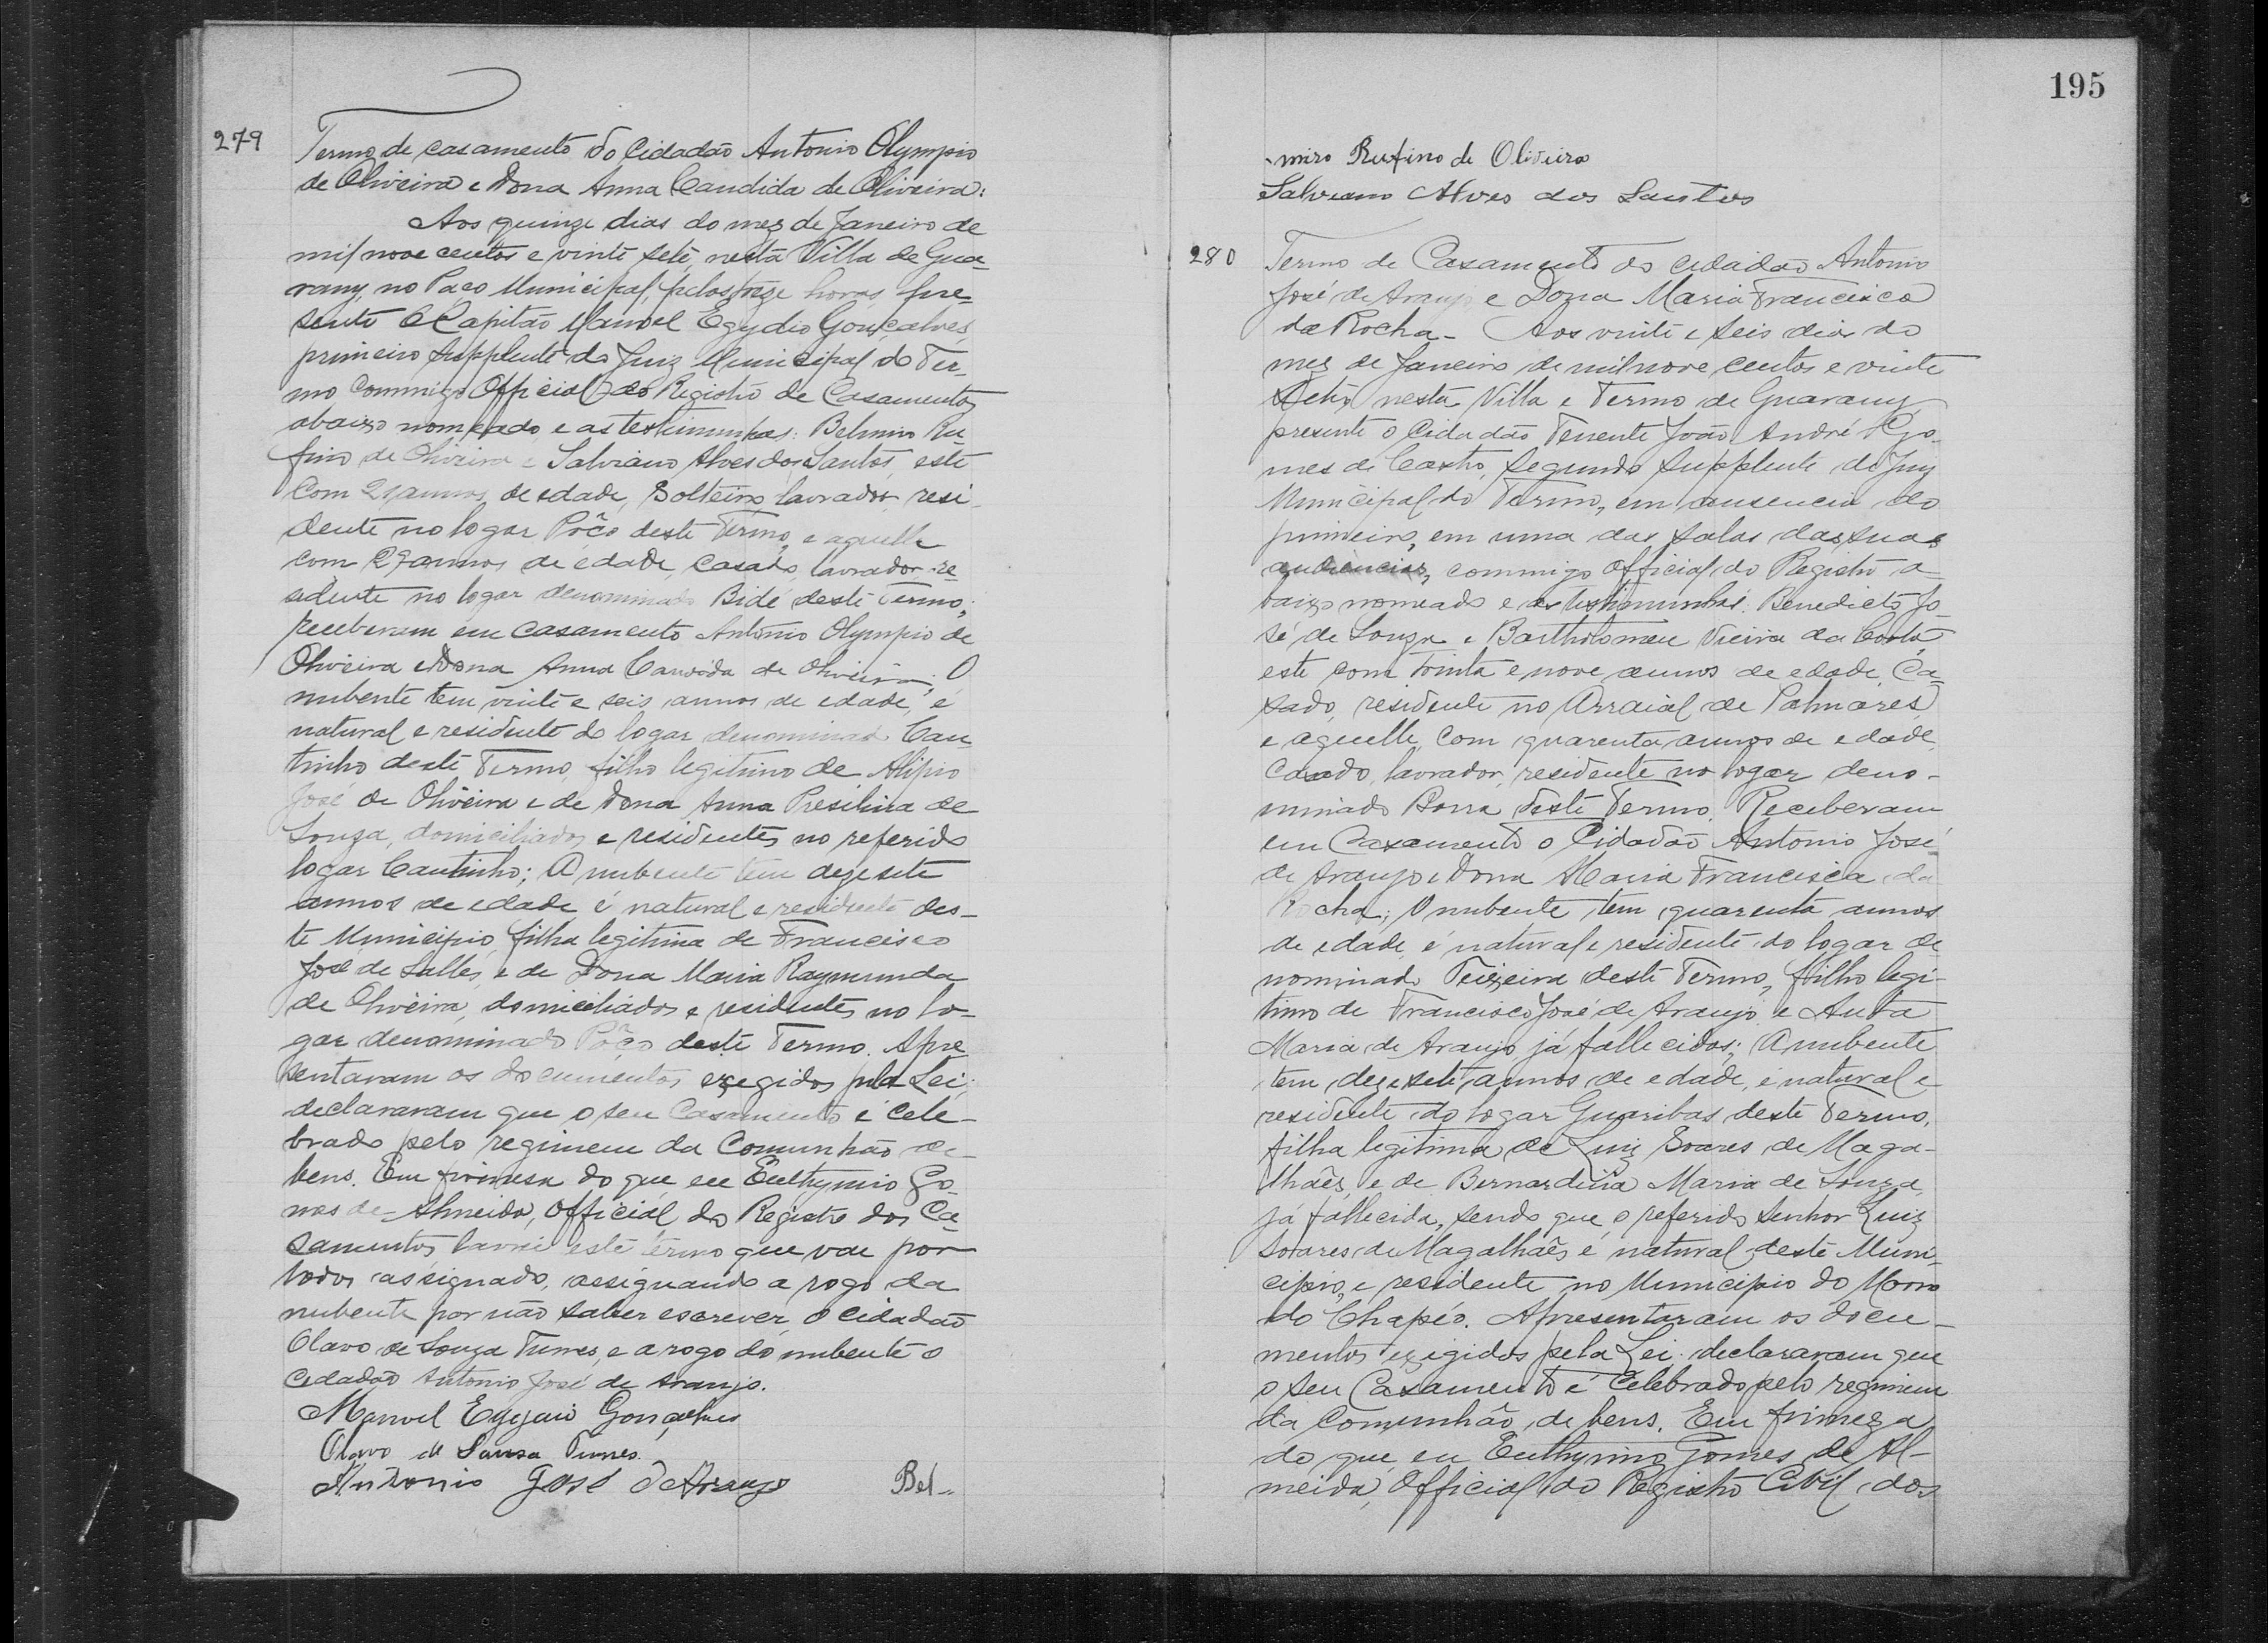 279
Termo de casamento do Cidadão Antonio Olympio
de Oliveira e Dona Anna Candida de Oliveira:
Aos quinze dias do mez de Janeiro de
mil nove centos e vinte sete, nesta Villa de Gua-
rany, no Paço Municipal, pelas treze horas, pre-
sente o Capitão Manoel Egydio Gonçalves,
primeiro supplente do Juiz Municipal do Ter-
mo commigo Official do Registro de Casamentos
abaixo nomeado e as testimunhas: Belmiro Ru-
fino de Oliveira e Salviano Alves dos Santos, este
com annos de edade, Solteiro, lavrador, resi-
dente no logar Pôço deste Termo, e aquelle
com annos de edade, casado, lavrador re-
sidente no logar denominado Bidé deste Termo,
receberam em casamento Antonio Olympio de
Oliveira e Dona Anna Candida de Oliveira; O
nubente tem vinte e seis annos de edade, é
natural e residente do logar denominado Can-
tinho deste Termo, filho legitimo de Alipio
José de Oliveira e de Dona Anna Presilina de
Souza, domiciliados e residentes no referido
logar Cantinho; A nubente tem dezesete
annos de edade, é natural e residente des-
te Municipio, filha legitima de Francisco
José de Salles, e de Dona Maria Raymunda
de Oliveira, domiciliados e residentes no lo-
gar denominado Pôço deste Termo. Apre-
sentaram os documentos exegidos pela Lei;
declararam que o seu Casamento é cele-
brado pelo regimem da Comunhão de
bens. Em firmesa do que, eu Euthymio Go-
mes de Almeida, Official do Registro dos Ca-
samentos, lavrei este termo que vae por
todos assignado, assignando a rogo da
nubente por não saber escrever, o cidadão
Olavo de Souza Tunes, e a rogo do nubente o
cidadão Antonio José de Araujo.
Manoel Egydio Gonçalves
Olavo de Sousa Tunes
Antonio José de Araujo Bel-
195
-miro Rufino de Oliveira
Salviano Alves dos Santos
280
Termo de Casamento do cidadão Antonio
José de Araujo e Dona Maria Francisca
da Rocha - Aos vinte e seis dias do
mez de Janeiro de mil nove centos e vinte
Sete, nesta Villa e Termo de Guarany,
presente o Cidadão Tenente João André Go-
mes de Castro, Segundo Supplente do Juiz
Municipal do Termo, em ausencia do
primeiro, em uma das salas das suas
audiencias, commigo Official do Registro a-
baixo nomeado e as testimunhas: Benedicto Jo-
sé de Souza e Bartholomeu Vieira da Costa,
este com trinta e nove annos de edade, Ca-
sado, residente no Arraial de Palmares,
e aquelle, com quarenta annos de edade,
casado, lavrador, residente no logar deno-
minado Barra deste Termo. Receberam
em Casamento o Cidadão Antonio José
de Araujo e Dona Maria Francisca da
Rocha; O nubente tem quarenta annos
de edade, é natural e residente do logar de-
nominado Teixeira deste Termo, filho legi-
timo de Francisco José de Araujo e Anta
Maria de Araujo, já fallecidos; A nubente
tem dezesete annos de edade, é natural e
residente do logar Guaribas deste Termo,
filha legitima de Luiz Soares de Maga-
lhães, e de Bernardina Maria de Souza,
já fallecida, sendo que o referido Senhor Luiz
Soares de Magalhães é natural deste Muni-
cipio, e residente no Municipio do Morro
do Chapéo. Apresentaram os docu-
mentos exigidos pela Lei: declararam que
o seu Casamento é Celebrado pelo regimem
da Comunhão de bens. Em firmeza
do que, eu Euthymio Gomes de Al-
meida, Official do Registro Civil dos